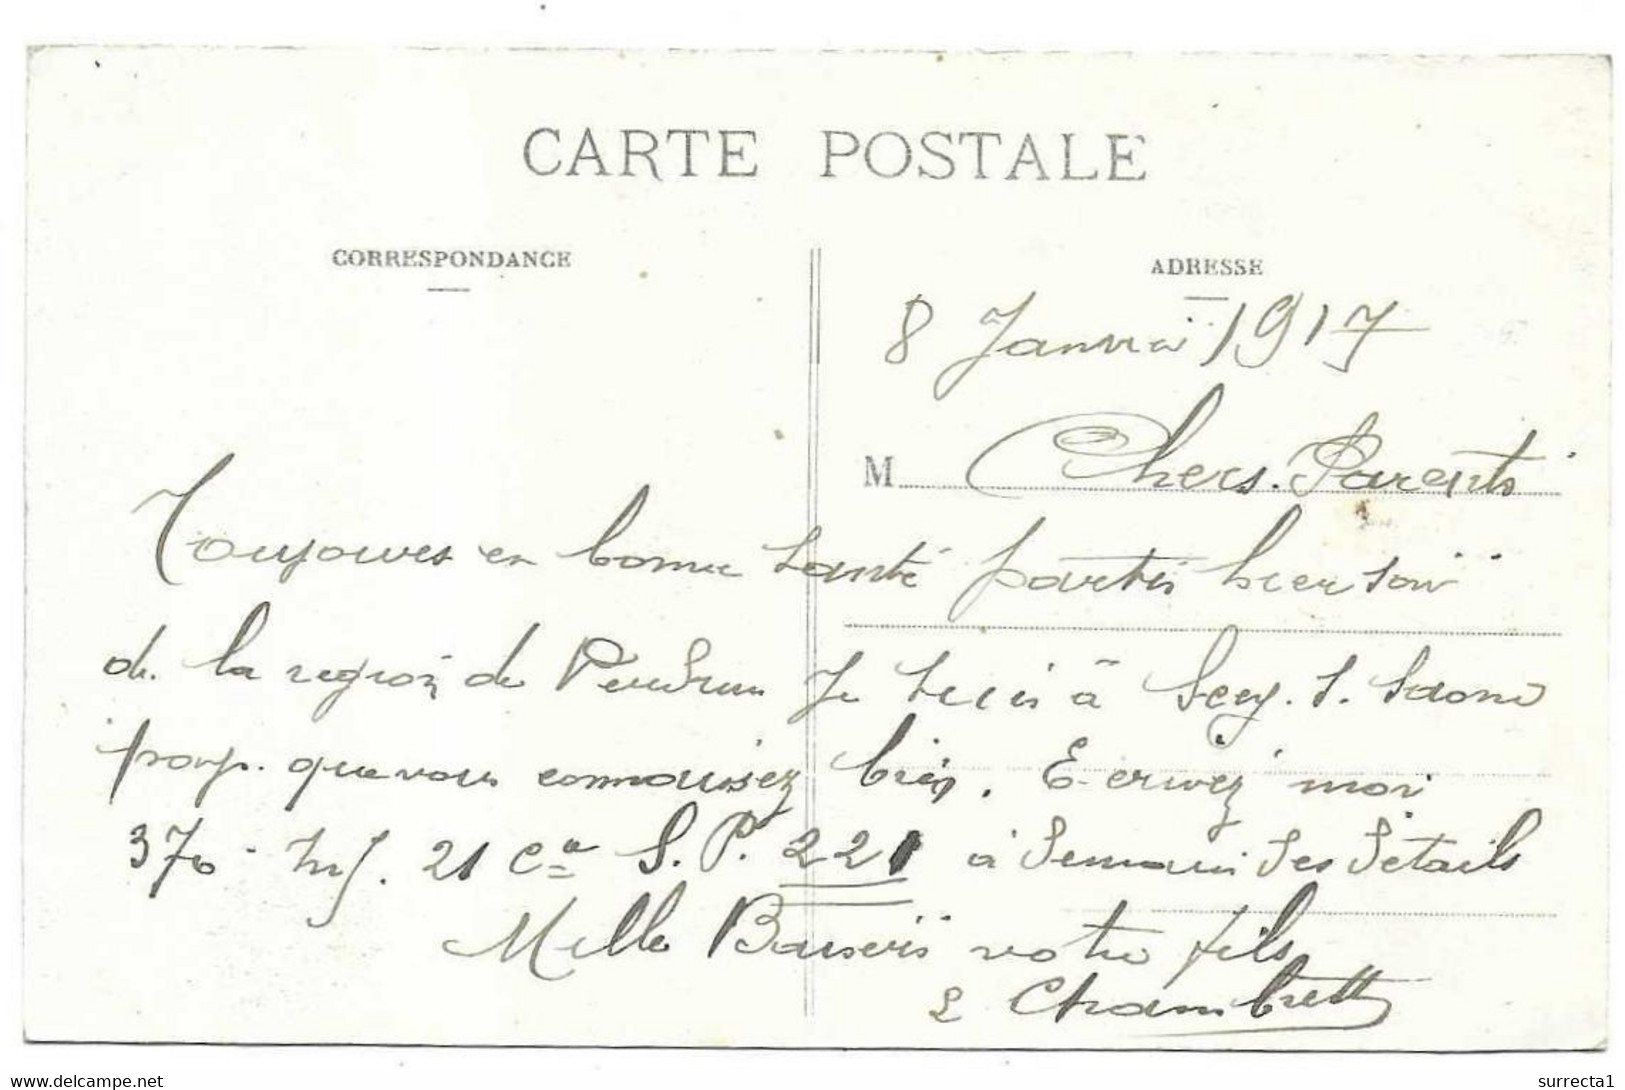 CARTE POSTALE
CORRESPONDANCE
ADRESSE
8 Janvier 1917
M Chers Parents
Toujours en bonne santé partis hier soir
de la region de Verdun Je suis à Scey. s. Saone
pays. que vous connaissez bien. Ecrivez moi
370 Inf. 21 Cie S.P. 221 à demain des détails
Mille Baisers votre fils
L Chambrett
www.delcampe.net
surrecta1